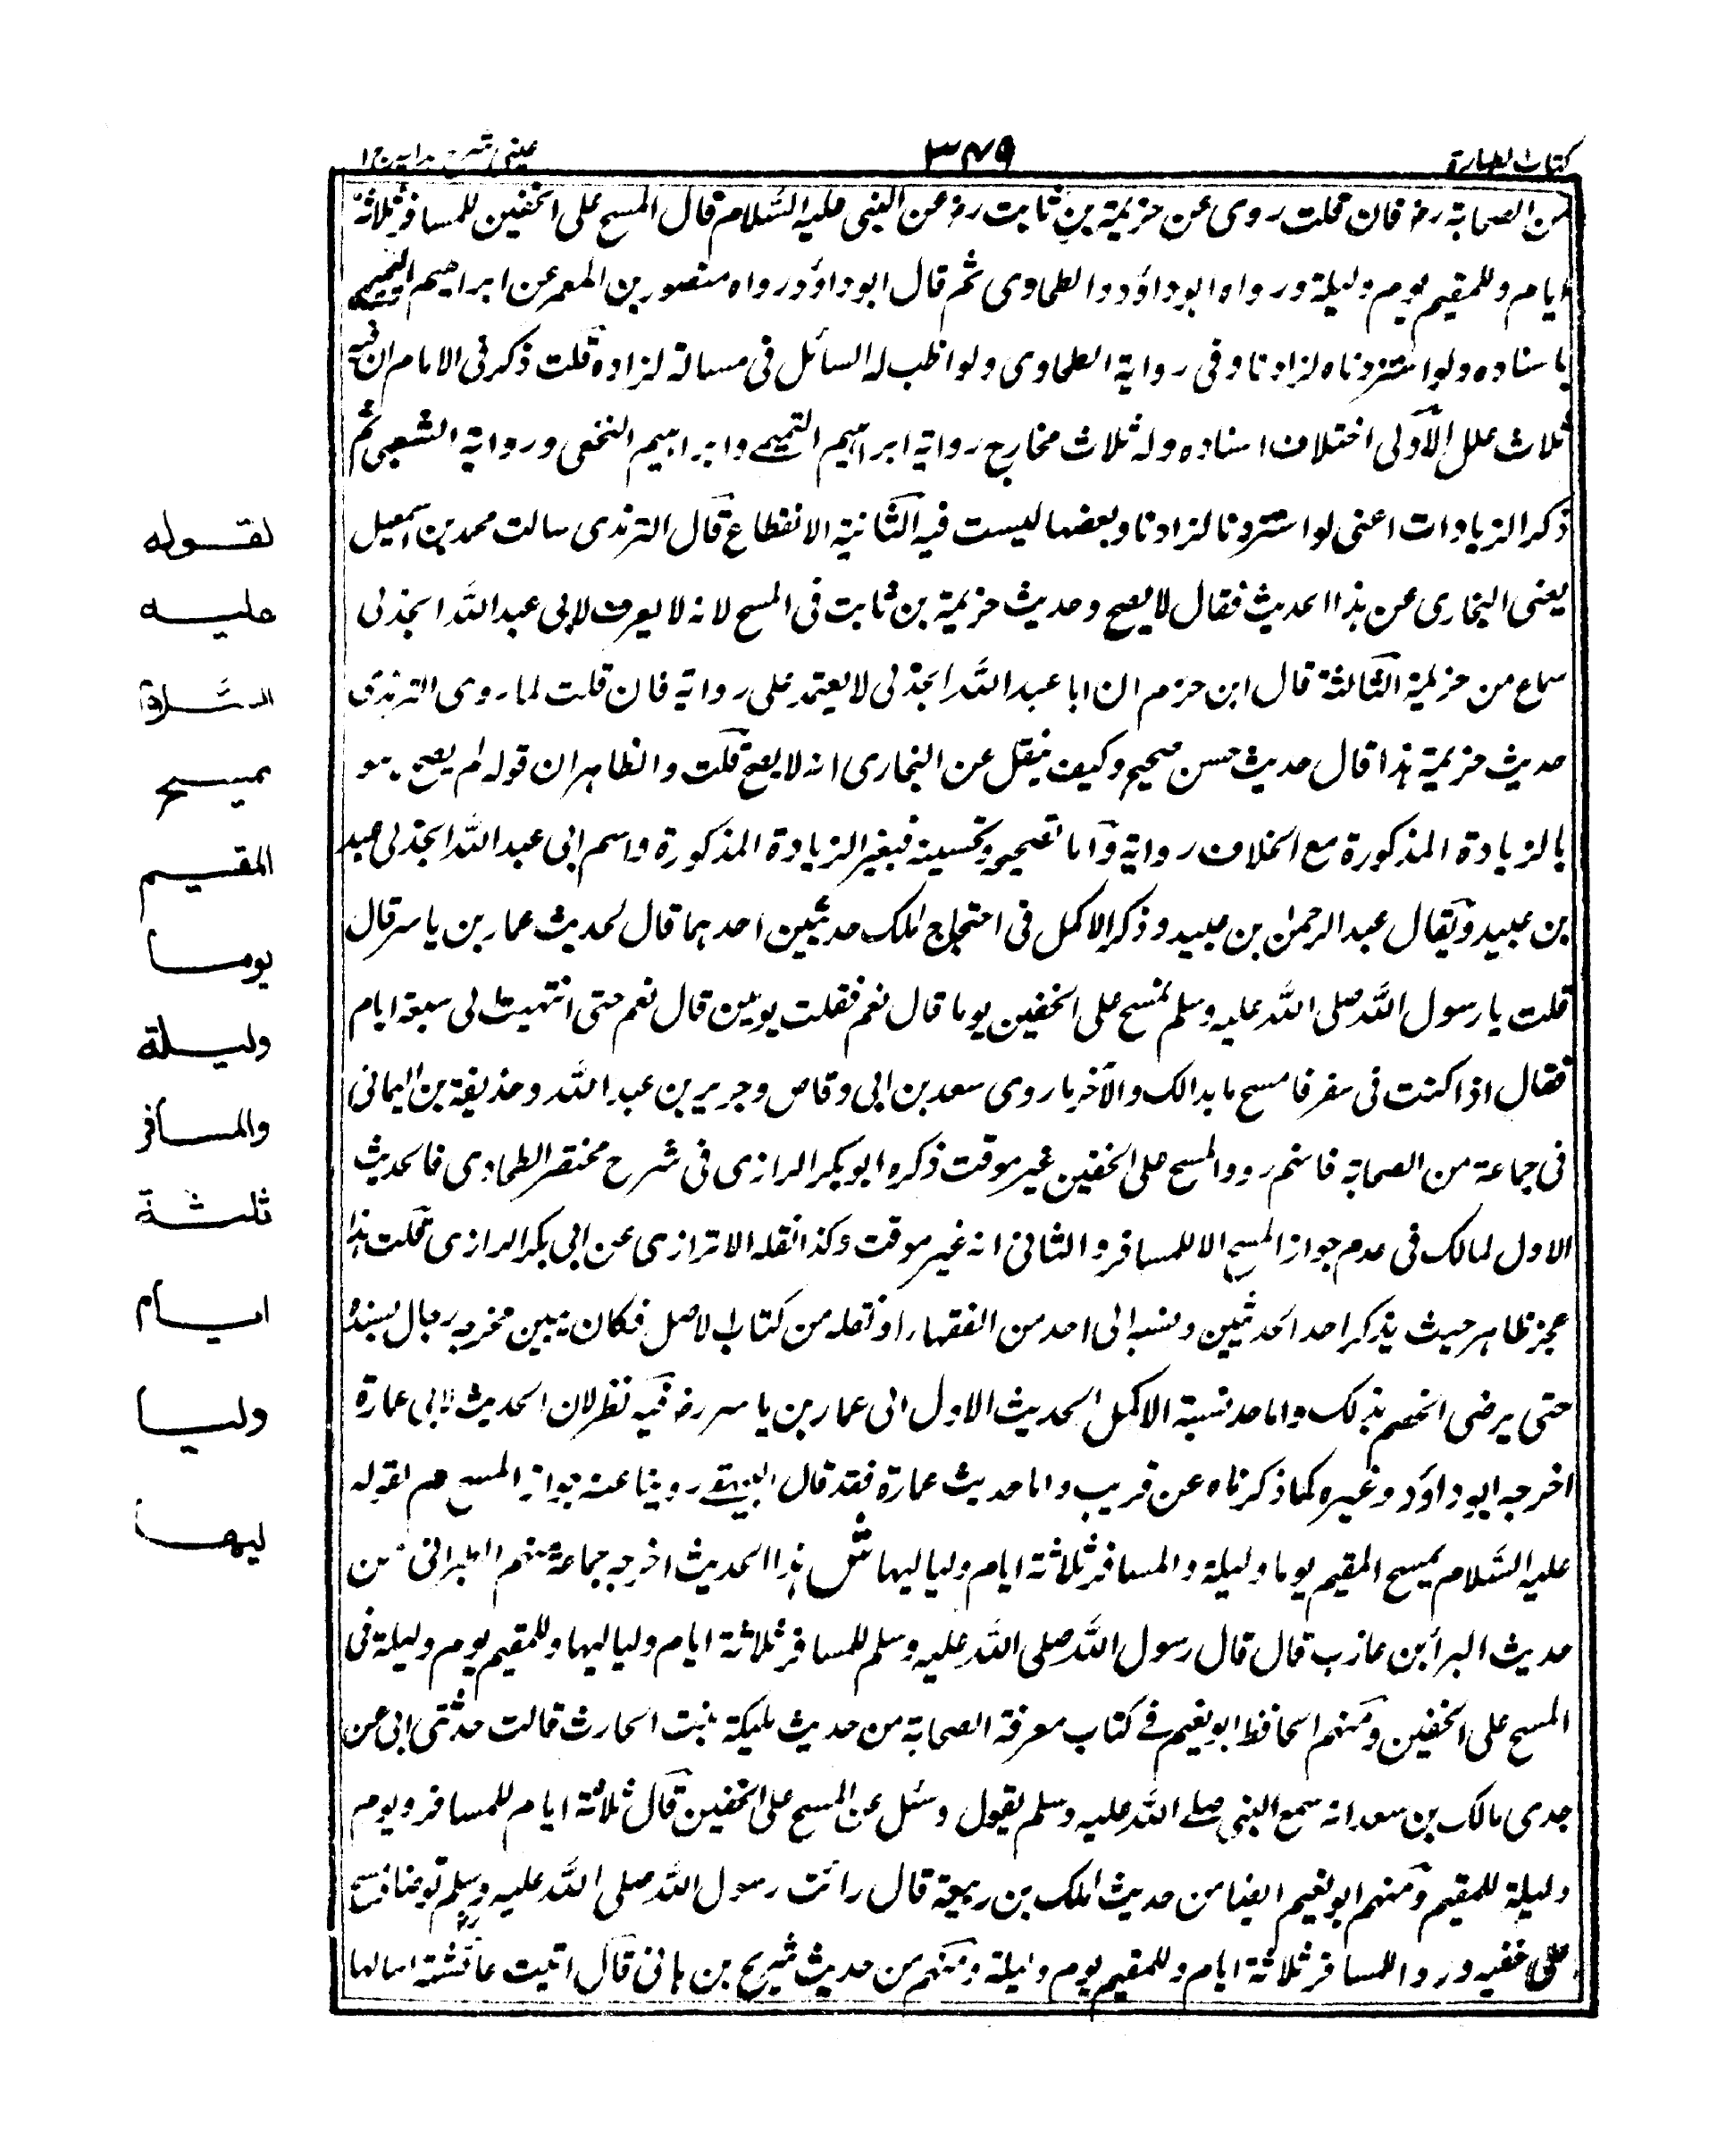 كتاب الطهارة
٣٤٩
عينى شرح هدايه ج ١
من الصحابة رض فان قلت روى عن خزيمة بن ثابت رض عن النبى عليه السلام قال المسح على الخفين للمسافر ثلاثة
ايام وللمقيم يوم وليلة ورواه ابو داؤد والطحاوى ثم قال ابو داؤد رواه منصور بن المعمر عن ابراهيم التيمى
باسناده ولو استزدناه لزادنا وفى رواية الطحاوى ولو اطنب له السائل فى مسالة لزاده قلت ذكر فى الامام ان فيه
ثلاث علل الاولى اختلاف اسناده وله ثلاث مخارج رواية ابراهيم التيمى وابراهيم النخعى ورواية الشعبى ثم
ذكر الزيادات اعنى لو استزدنا لزادنا وبعضها ليست فيه الثانية الانقطاع قال الترمذى سالت محمد بن اسمعيل
يعنى البخارى عن هذا الحديث فقال لا يصح وحديث خزيمة بن ثابت فى المسح لانه لا يعرف لابى عبد الله الجدلى
سماع من خزيمة الثالثة قال ابن حزم ان ابا عبد الله الجدلى لا يعتمد على رواية فان قلت لما روى الترمذى
حديث خزيمة هذا قال حديث حسن صحيح وكيف ينقل عن البخارى انه لا يصح قلت والظاهر ان قوله لم يصح هو
بالزيادة المذكورة مع اختلاف رواية واما تصحيحه وتحسينه فبغير الزيادة المذكورة واسم ابى عبد الله الجدلى عبد
بن عبيد ويقال عبد الرحمن بن عبيد وذكر الاكمل فى احتجاج مالك حديثين احدهما قال لحديث عمار بن ياسر قال
قلت يا رسول الله صلى الله عليه وسلم نمسح على الخفين يوما قال نعم فقلت يومين قال نعم حتى انتهيت الى سبعة ايام
فقال اذا كنت فى سفر فامسح ما بدالك والآخر ما روى سعد بن ابى وقاص وجرير بن عبد الله وحذيفة بن اليمانى
فى جماعة من الصحابة فانهم رووا المسح على الخفين غير موقت ذكره ابو بكر الرازى فى شرح مختصر الطحاوى فالحديث
الاول لمالك فى عدم جواز المسح الا للمسافر والثانى انه غير موقت وكذا نقله الاترازى عن ابى بكر الرازى قلت هذا
عجز ظاهر حيث يذكر احد الحديثين ونسبه الى احد من الفقهاء او نقله من كتاب الاصل فكان يبين مخرجه رجال بسنده
حتى يرضى الخصم بذلك واما حد نسبة الاكمل الحديث الاول الى عمار بن ياسر رض ففيه نظر لان الحديث لابى عمارة
اخرجه ابو داؤد وغيره كما ذكرناه عن قريب واما حديث عمارة فقد قال البيهقى روينا عنه جواز المسح هم لقوله
عليه السلام يمسح المقيم يوما وليلة والمسافر ثلاثة ايام ولياليها ش هذا الحديث اخرجه جماعة منهم الطبرانى من
حديث البراء بن عازب قال قال رسول الله صلى الله عليه وسلم للمسافر ثلاثة ايام ولياليها وللمقيم يوم وليلة فى
المسح على الخفين ومنهم الحافظ ابو نعيم فى كتاب معرفة الصحابة من حديث مليكة بنت الحارث قالت حدثتى ابى عن
جدى مالك بن سعد انه سمع النبى صلى الله عليه وسلم يقول وسئل عن المسح على الخفين قال ثلاثة ايام للمسافر ويوم
وليلة للمقيم ومنهم ابو نعيم ايضا من حديث مالك بن ربيعة قال رائت رسول الله صلى الله عليه وسلم توضا فمسح
على خفيه وروا للمسافر ثلاثة ايام وللمقيم يوم وليلة ومنهم من حديث شريح بن هانى قال اتيت عائشة اسالها
لقوله
عليه
السلام
يمسح
المقيم
يوما
وليلة
والمسافر
ثلثة
ايام
وليا
ليها